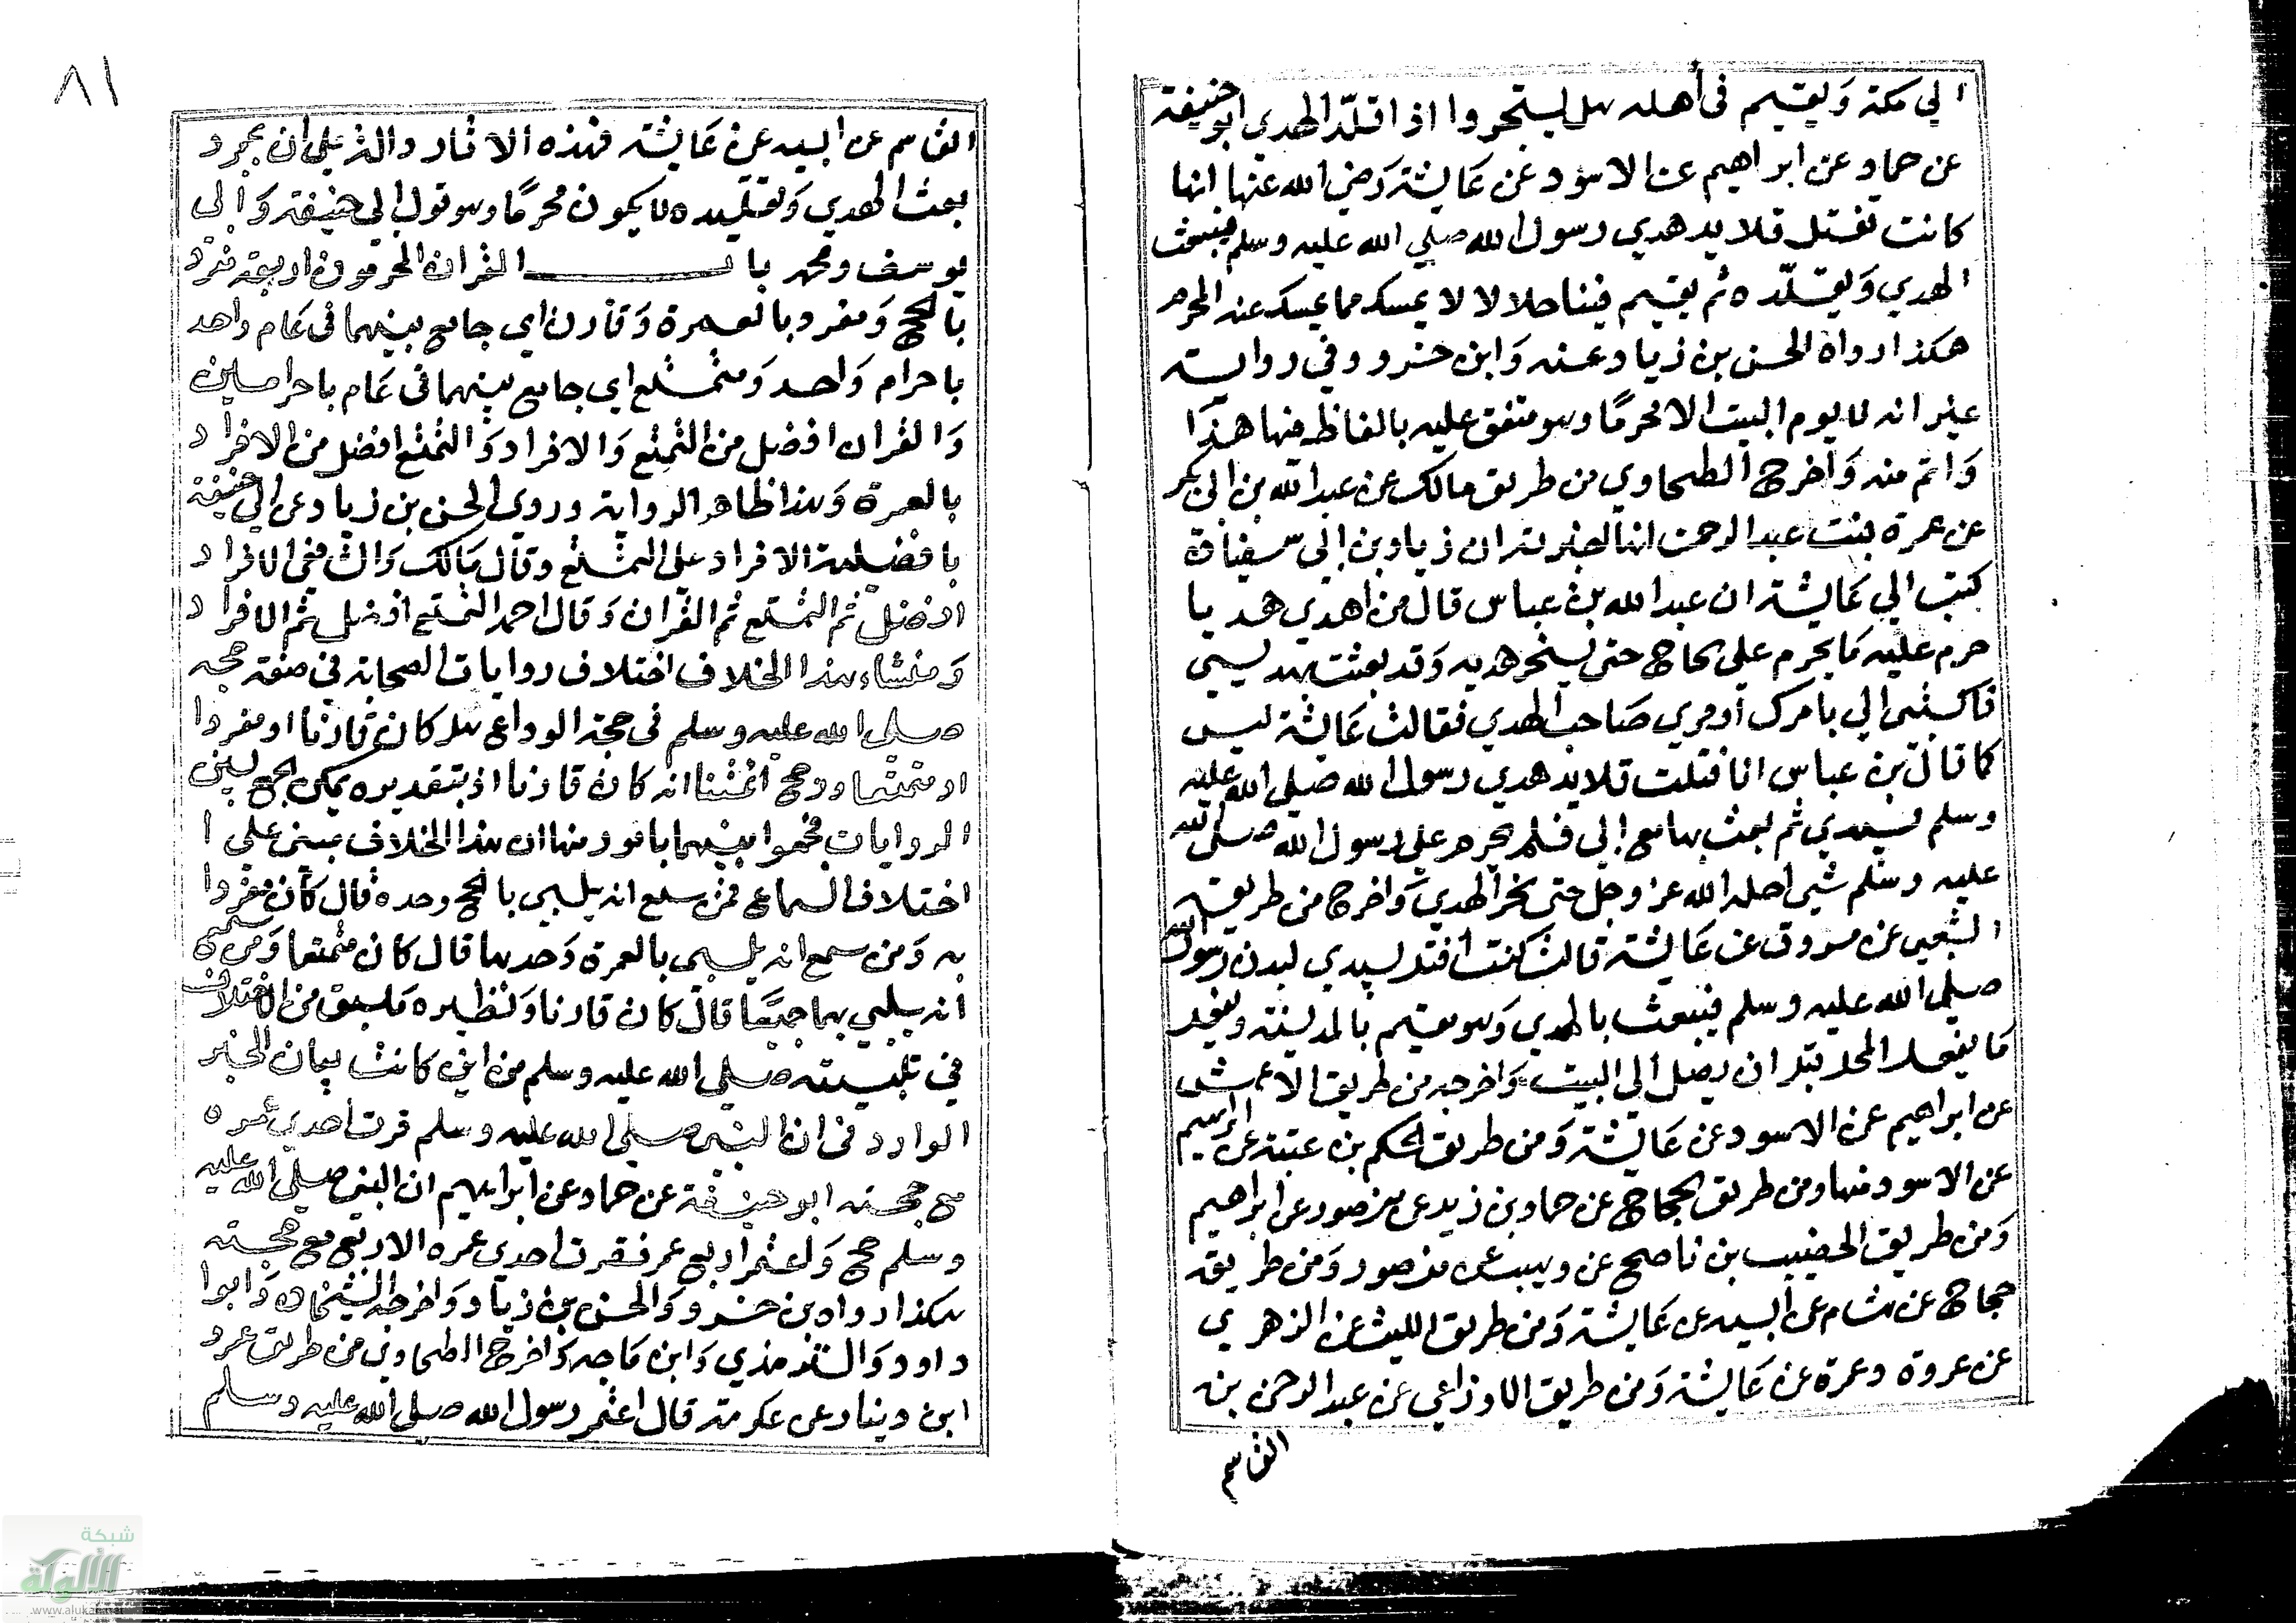 الي مكة وَيقيم في أهله هل يستجروا اذا قلّد الهدي ابو حنيفة
عن حماد عن ابراهيم عن الاسود عن عَايشة رَضي الله عنها انها
كانت تفتل قلايد هدي رسول الله صلي الله عليه وسلم فيبعث
الهدي وَيقلّده ثم يقيم فينا حلالا لا يمسك مما يمسك عنه المحرم
هكذا رواه الحسن بن زياد عنه وَابن خسرو وفي رواية
عنه انه لا يوم البيت الا محرمًا وهو متفق عليه بالفاظ منها هذا
وَاتم منه وَأخرج الطحاوي من طريق مالك عن عبد الله بن ابي بكر
عن عمرة بنت عبد الرحمن انها اخبرته ان زياد بن ابي سفيان
كتب الي عَايشة ان عبد الله بن عباس قال من اهدي هديا
حرم عليه مَا يحرم على الحاج حتى ينحر هديه وَقد بعثت بهديي
فاكتبي الي بامرك أو مري صَاحب الهدي فقالت عَايشة ليس
كما قال بن عباس انا فتلت قلايد هدي رسول الله صلي الله عليه
وسلم بيدي ثم بعث بها مع ابي فلم يحرم علي رسول الله صلي الله
عليه وسلم شي احله الله عز وجل حتى نحر الهدي وَاخرج من طريق
الشعبي عن مسروق عن عَايشة قالت كنت أفتل بيدي لبدن رسول الله
صلي الله عليه وسلم فيبعث بالهدي وَهو مقيم بالمدينة ويفعل
مَا يفعل المحل قبل ان يصل الي البيت وَاخرجه من طريق الاعمش
عن ابراهيم عن الاسود عن عَايشة وَمن طريق الحكم بن عتبة عن ابراهيم
عن الاسود منها ومن طريق الحجاج عن حماد بن زيد عن منصور عن ابراهيم
وَمن طريق الخصيب بن ناصح عن وهيب عن منصور وَمن طريق
حجاج عن هشام عن أبيه عن عَايشة وَمن طريق الليث عن الزهري
عن عروة وعمرة عن عَايشة وَمن طريق الاوزاعي عن عبد الرحمن بن
القاسم
٨١
القاسم عن ابيه عن عَايشة فهذه الاثار دالة علي ان مجرد
بعث الهدي وَتقليده لا يكون محرمًا وهو قول ابي حنيفة وَابي
يوسف ومحمد باب القران المحرمون اربعة مفرد
بالحج وَمفرد بالعمرة وَقارن اي جامع بينهما في عَام واحد
باحرام وَاحد وَمتمتع اي جامع بينهما في عَام باحرامين
وَالقران افضل من التمتع وَالافراد وَالتمتع افضل من الافراد
بالعمرة وَهذا ظاهر الرواية وروي الحسن بن زياد عن ابي حنيفة
بافضيلة الافراد على التمتع وقال مَالك وَالشافعي الافراد
افضل ثم التمتع ثم القران وَقال احمد التمتع افضل ثم الافراد
وَمنشاء هذا الخلاف اختلاف روايات الصحابة في صفة حجه
صلي الله عليه وسلم في حجة الوداع هل كان قارنا او مفردا
او متمتعا ورجح أئمتنا انه كان قارنا اذ بتقديره يمكن الجمع بين
الروايات فجمعوا بينهما بامور منها ان هذا الخلاف مبني علي ا
اختلاف السماع فمن سمع انه يلبي بالحج وحده قال كان مفردا
به وَمن سمع انه يلبي بالعمرة وَحدها قال كان متمتعا وَمن سمع
انه يلبي بهما جميعًا قال كان قارنا وَنظيره مَا سبق من الاختلاف
في تلبيته صلي الله عليه وسلم من اين كانت بيان الخبر
الوارد في ان النبي صلي الله عليه وسلم قرن احدي عمره
مع حجته ابو حنيفة عن حماد عن ابراهيم ان النبي صلي الله عليه
وسلم حج وَاعتمر اربع عمر فقرن احدي عمره الاربع مع حجته
هكذا رواه بن خسرو وَالحسن بن زياد وَاخرجه الشيخان وَابوا
داود وَالترمذي وَابن مَاجه وَاخرج الطحاوي من طريق عمرو
ابن دينار عن عكرمة قال اعتمر رسول الله صلي الله عليه وسلم
شبكة
الألوكة
www.alukah.net